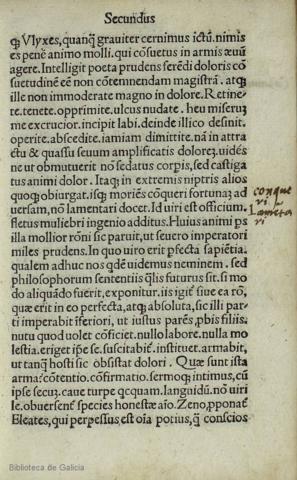 Secundus
q̃ Vlyxes, quanq̃ grauiter cernimus ictũ. nimis
es penè animo molli. qui cõsuetus in armis æuũ
agere. Intelligit poeta prudens ferẽdi doloris cõ
suetudinẽ eẽ non cõtemnendam magistrã. atq;
ille non immoderate magno in dolore. Retine-
te. tenete. opprimite. ulcus nudate. heu miserũ
me excrucior. incipit labi. deinde illico desinit.
operite. abscedite. iamiam dimittite. nã in attra
ctu & quassu seuum amplificatis dolorẽ. uidés
ne ut obmutuerit nõ sedatus corpis, sed castiga
tus animi dolor. Itaq; in extremis niptris alios
quoq; obiurgat. isq; moriẽs cõqueri fortunaz ad
uersam, nõ lamentari docet. Id uiri est officium.
fletus muliebri ingenio additus. Huius animi ps
illa mollior rõni sic paruit, ut seuero imperatori
miles prudens. In quo uiro erit pfecta sapiẽtia.
qualem adhuc nos qdẽ uidemus neminem. sed
philosophorum sententiis q̃lis futurus sit. si mo
do aliquãdo fuerit, exponitur. iis igit̃ siue ea rõ,
quæ erit in eo perfecta, atq; absoluta, sic illi par
ti imperabit iferiori, ut iustus parés, pbis filiis.
nutu quod uolet cõficiet. nullo labore. nulla mo
lestia. eriget ipse se. suscitabit̃. instituet. armabit,
ut tanq̃ hosti sic obsistat dolori. Quæ sunt ista
arma? cõtentio. cõfirmatio. sermoq; intimus, cũ
ipse secuz. caue turpe qcquam. languidũ. nõ uiri
le. obuersent̃ species honestæ aĩo. Zeno, pponat̃
Eleates, qui perpessus est oĩa potius, q̃ cõscios
conque
ri
Lamẽta
ri
Biblioteca de Galicia